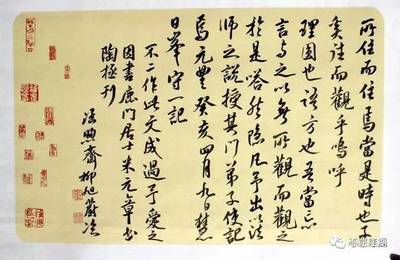 所住而住焉當是時也子
奚往而觀乎嗚呼
理圓也語方也吾當忘
言與之以無所觀而觀之
於是嗒然隱几予出以法
師之說授其門弟子使記
焉元豐癸亥四月九日慧
日峯守一記
不二作此文成過予愛之
因書鹿門居士米元章書
陶拯刊
齋柳旭蔚